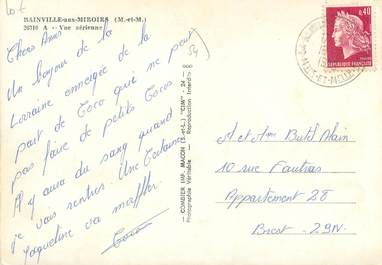 10 €
BAINVILLE-aux-MIROIRS (M.-et-M.)
26710 A - Vue aérienne
54
Chers Amis
Un bonjour de la
Lorraine enneigée de la
part de Coco qui ne peut
pas faire de petits Cocos
Il y aura du sang quand
je vais rentrer. Une Certaine
Jaqueline va
Coco
COMBIER IMP. MACON (S.-et-L.) "CIM" - 24 -
Photographie Véritable - Reproduction Interdite
0,40
REPUBLIQUE FRANÇAISE
M et Mme Alain
10 rue
Appartement 28
Brest - 29N.